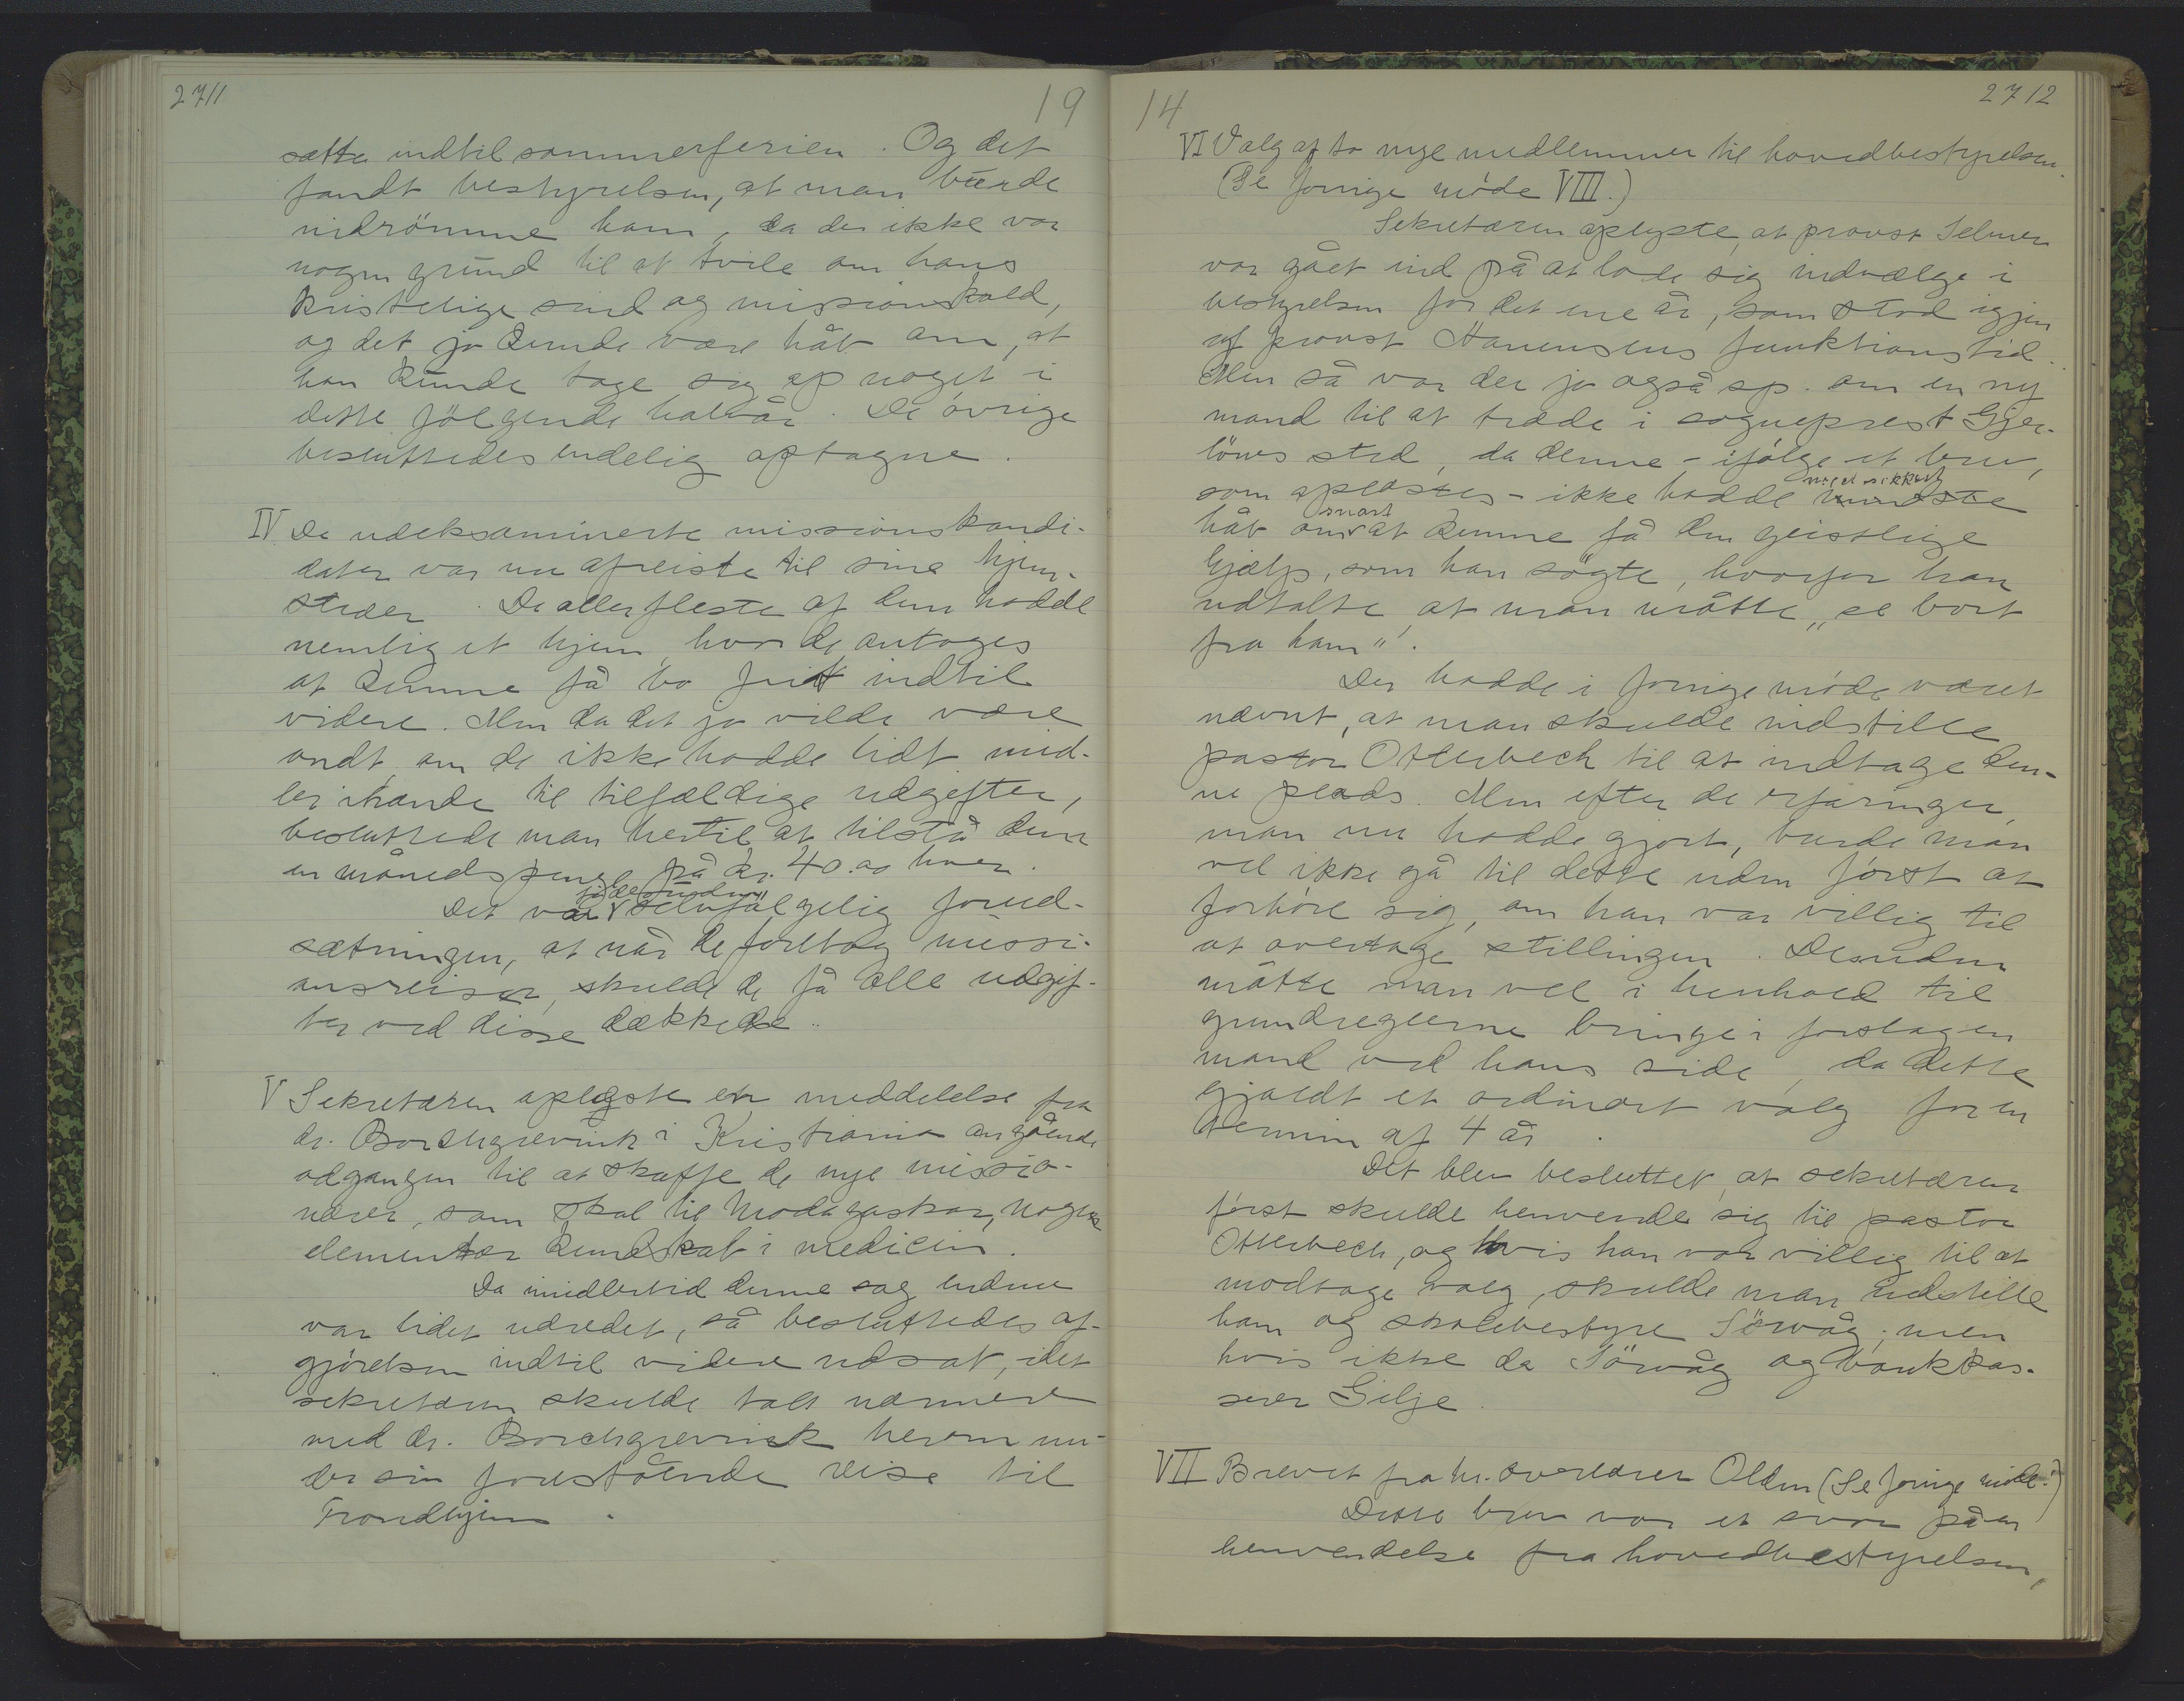 2711
19
sætte indtil sommerferien. Og det
fandt bestyrelsen, at man burde
indrömme ham, da der ikke var
nogen grund til at tvile om hans
kristelige sind og missionskald,
og det jo kunde være håb om, at
han kunde tage sig op noget i
dette følgende halvår. De øvrige
besluttedes endelig optagne.
IV De udeksaminerte missionskandi-
dater var nu afreiste til sine hjem-
steder. De aller fleste af dem hadde
nemlig et hjem, hvor de antoges
at kunne få bo frit indtil
videre. Men da det jo vilde være
ondt, om de ikke hadde lidt mid-
ler ihænde til tilfældige udgifter,
besluttede man hertil at tilstå dem
en månedspenge på kr. 40.00 hver.
desuden
Det var selvfølgelig forud-
sætningen, at når de foretog missi-
onsreiser, skulde de få alle udgif-
ter ved disse dækkede.
V Sekretæren oplæste en meddelelse fra
dr. Borchgrevink i Kristiania angående
adgangen til at skaffe de nye missio-
nærer, som skal til Madagaskar, nogen
elementær kundskab i medicin.
Da imidlertid denne sag endnu
var lidet udredet, så besluttedes af-
gjörelsen indtil videre udsat, idet
sekretæren skulde tale nærmere
med dr. Borchgrevink herom un-
der sin forestående reise til
Trondhjem.
14
2712
VI Valg af to nye medlemmer til hovedbestyrelsen.
(Se forrige möde VIII.)
Sekretæren oplyste, at provst Selmer
var gået ind på at lade sig indvælge i
bestyrelsen for det ene år, som stod igjen
af provst Hanensens funktionstid.
Men så var der jo også sp. om en ny
mand til at træde i sogneprest Gjer-
löws sted, da denne – ifølge et brev,
noget sikkert
som oplæstes – ikke hadde mindste
snart
håb om at kunne få den geistlige
hjælp, som han sögte, hvorfor han
udtalte, at man måtte „se bort
fra ham".
Der hadde i forrige möde været
nævnt, at man skulde indstille
pastor Otterbech til at indtage den-
ne plads. Men efter de erfaringer,
man nu hadde gjort, burde man
vel ikke gå til dette uden först at
forhöre sig, om han var villig til
at overtage stillingen. Desuden
måtte man vel i henhold til
grundreglerne bringe i forslag en
mand ved hans side, da dette
gjaldt et ordinært valg for en
termin af 4 år.
Det blev besluttet, at sekretæren
först skulde henvende sig til pastor
Otterbech, og hvis han var villig til at
modtage valg, skulde man indstille
ham og skolebestyrer Sörvåg; men
hvis ikke da Sörvåg og bankkas-
serer Gilje.
VII Brevet fra hr. overlærer Olden (Se forrige möde.)
Dette brev var et svar på en
henvendelse fra hovedbestyrelsen,